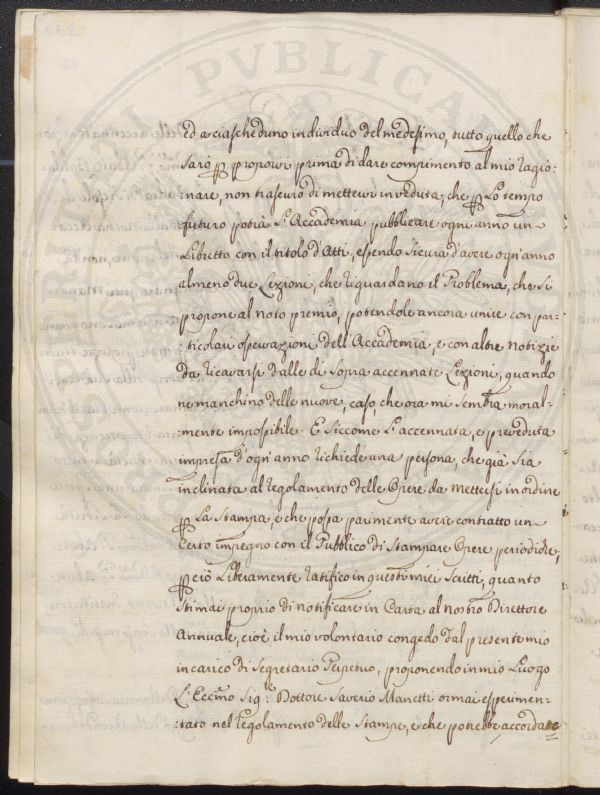 ed a ciascheduno individuo del medesimo, tutto quello che
sarò p proporvi prima di dare compimento al mio ragio:
:nare, non trascuro di mettervi in veduta, che p lo tempo
futuro potrà L'Accademia pubblicare ogni anno un
Libretto con il titolo d'Atti, essendo sicura d'avere ogn'anno
almeno due Lezioni, che riguardano il Problema, che si
propone al noto premio, potendole ancora unire con par=
:ticolari osservazioni dell'Accademia, e con altre notizie
da ricavarsi dalle di sopra accennate Lezioni, quando
ne manchino delle nuove, caso, che ora mi sembra moral=
:mente impossibile. E siccome L'accennata, e preveduta
impresa d'ogn'anno richiede una persona, che già sia
inclinata al regolamento delle Opere da mettersi in ordine
p La Stampa, e che possa parimente avere contratto un
certo impegno con il Pubblico di stampare Opere periodiche;
p ciò liberamente ratifico in questi miei scritti, quanto
stimai proprio di notificare in Carta al nostro Direttore
Annuale, cioè il mio volontario congedo dal presente mio
incarico di Segretario Perpetuo, proponendo in mio Luogo
L'Eccmo Sigre Dottore Saverio Manetti ormai esperimen=
:tato nel regolamento delle Stampe, e che potrebbe accordare
PVBLICAE